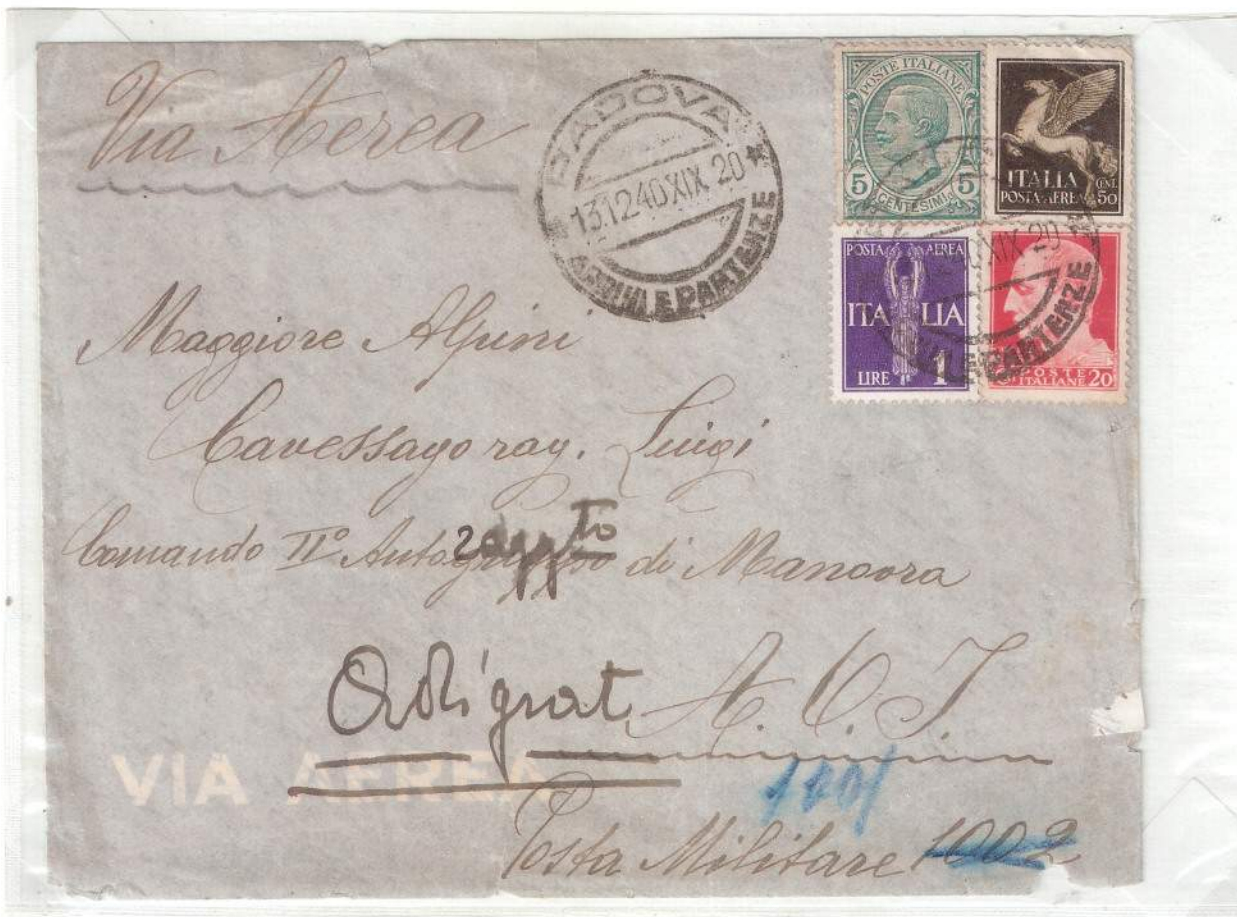 Via Aerea
PADOVA
13.12.40.XIX 20
ARRIVI E PARTENZE
POSTE ITALIANE
5 5
CENTESIMI
ITALIA CENT.
POSTA AEREA 50
POSTA AEREA
ITALIA
LIRE 1
XIX 20
PARTENZE
POSTE
ITALIANE 20
Maggiore Alpini
Cavessago rag. Luigi
Comando II° di Manovra
Adigrat A. O. I
VIA AEREA
Posta Militare 1002